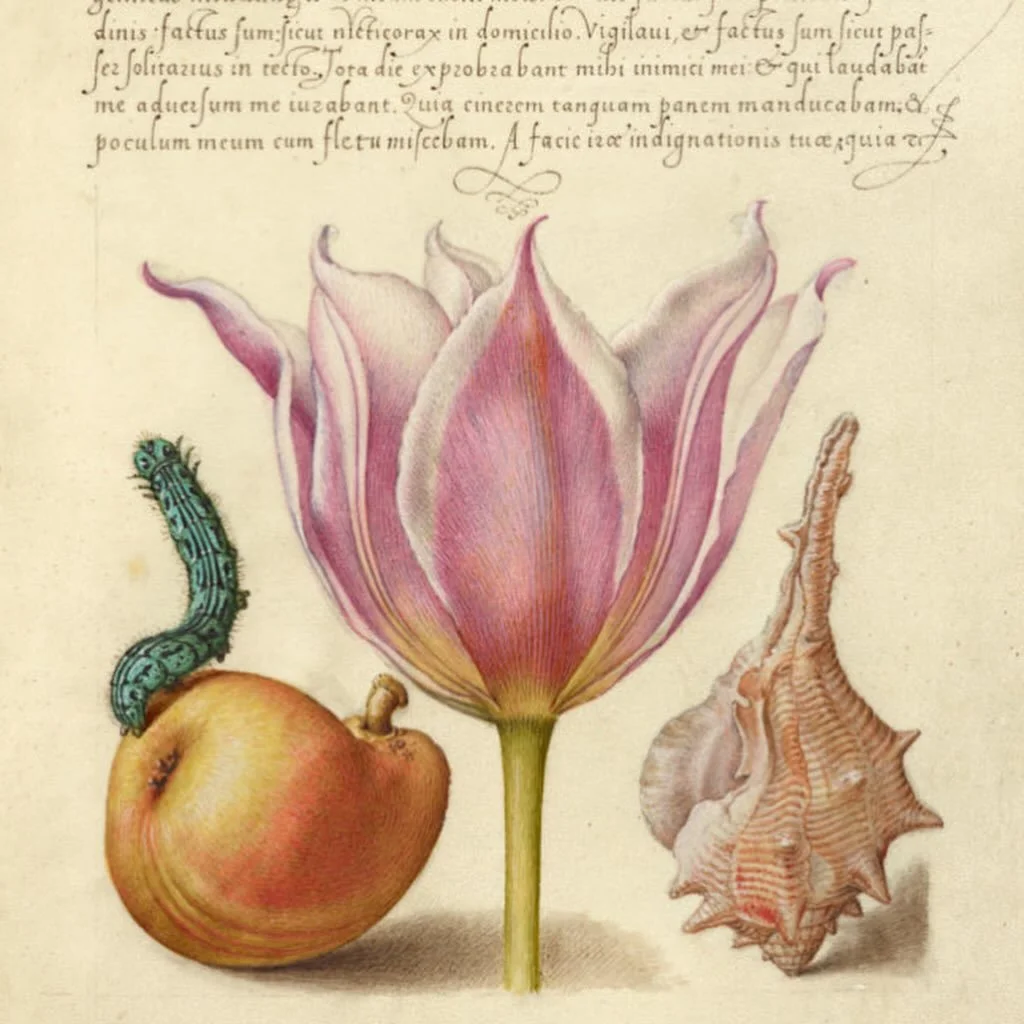 dinis : factus sum: sicut nicticorax in domicilio. Vigilaui, & factus sum sicut pas=
ser solitarius in tecto. Tota die exprobrabant mihi inimici mei: & qui laudabāt
me aduersum me iurabant. Quia cinerem tanquam panem manducabam; &
poculum meum cum fletu miscebam. A facie iræ indignationis tuæ, quia